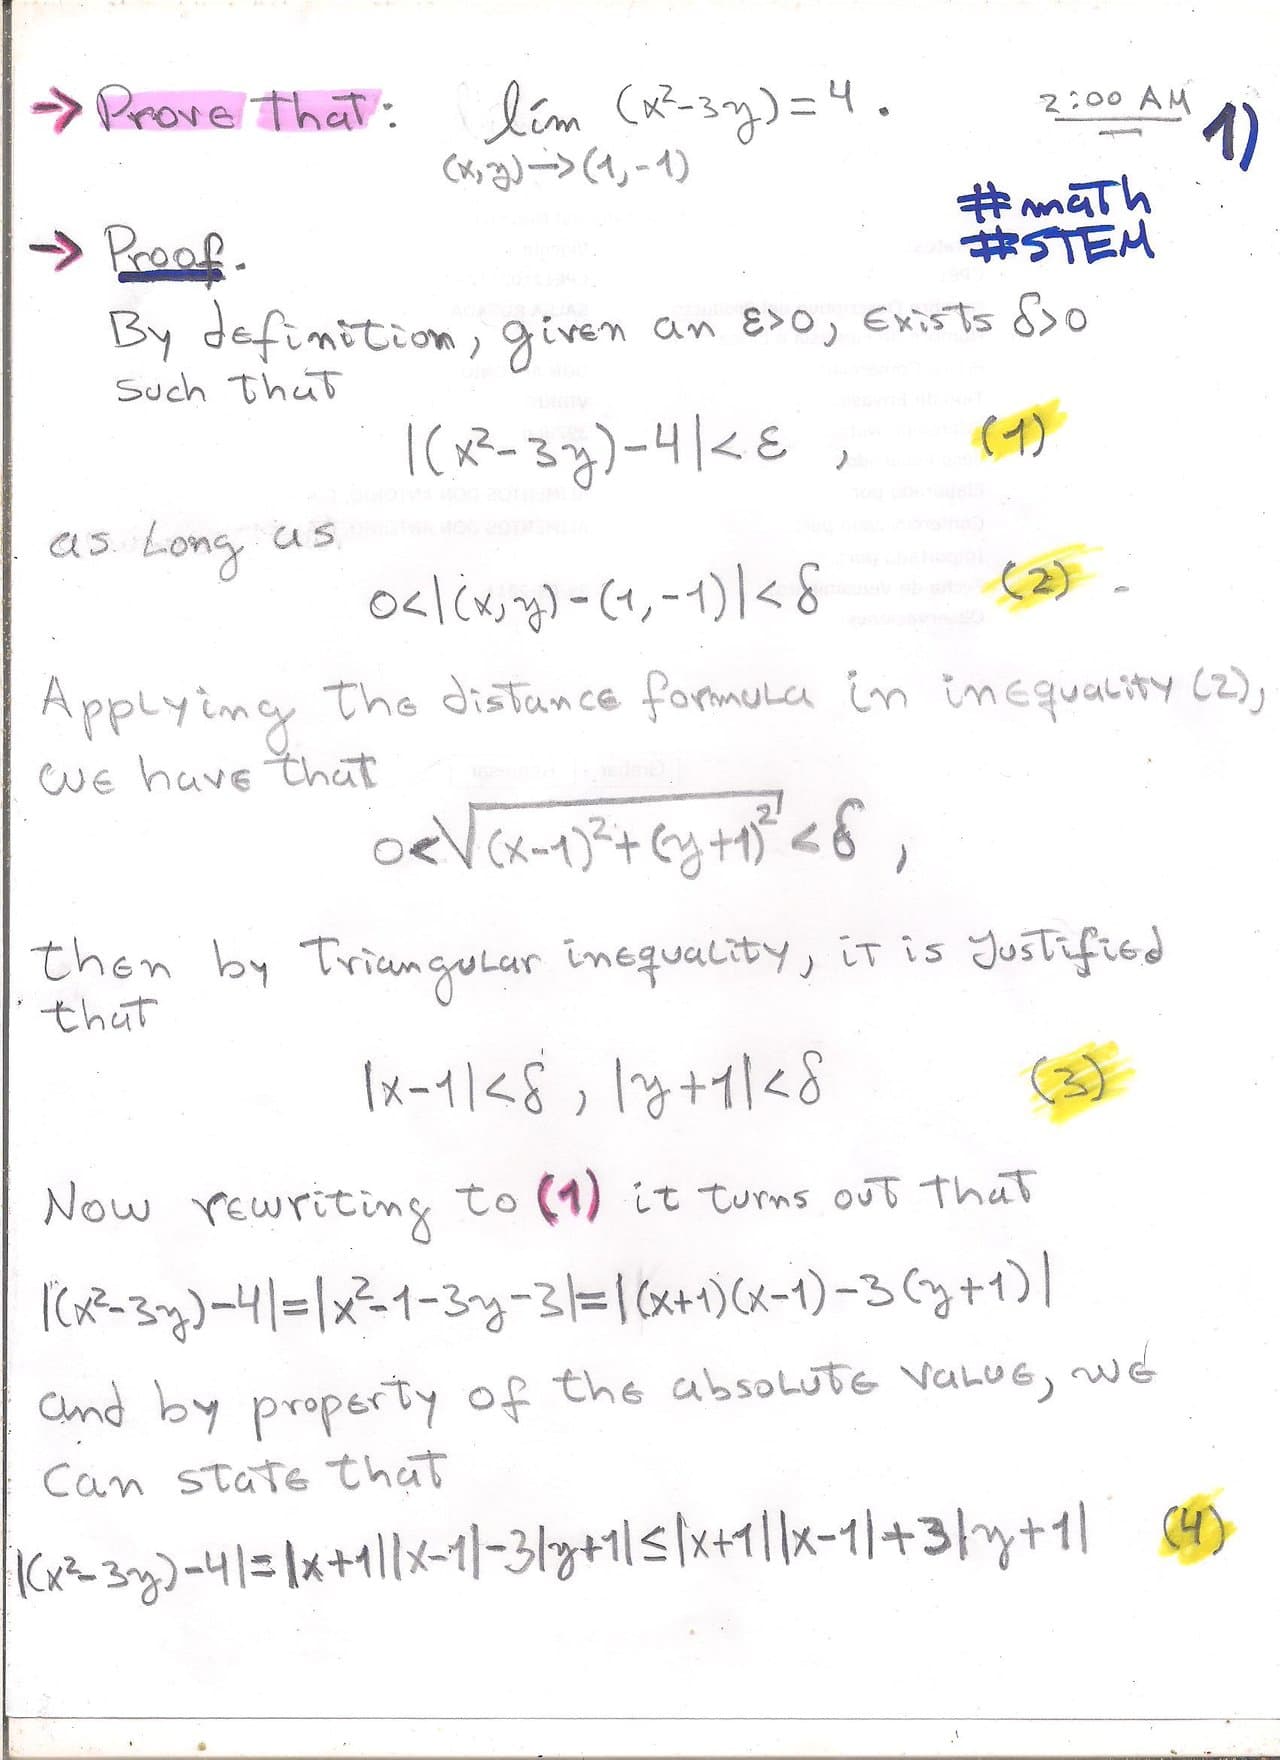 → Prove that: lím (x²-3y)=4. 2:00 AM 1)
(x,y)→(1,-1)
#math
#STEM
→ Proof.
By definition, given an ε>0, Exists δ>0
such that
|(x²-3y)-4|<ε , (1)
as Long as
0<|(x,y)-(1,-1)|<δ (2) .
Applying the distance formula in inequality (2),
we have that
0<√(x-1)²+(y+1)² <δ ,
then by Triangular inequality, it is Justified
that
|x-1|<δ , |y+1|<δ (3)
Now rewriting to (1) it turns out that
|(x²-3y)-4|=|x²-1-3y-3|=|(x+1)(x-1)-3(y+1)|
and by property of the absolute value, we
can state that
|(x²-3y)-4|=|x+1||x-1|-3|y+1|≤|x+1||x-1|+3|y+1| (4)